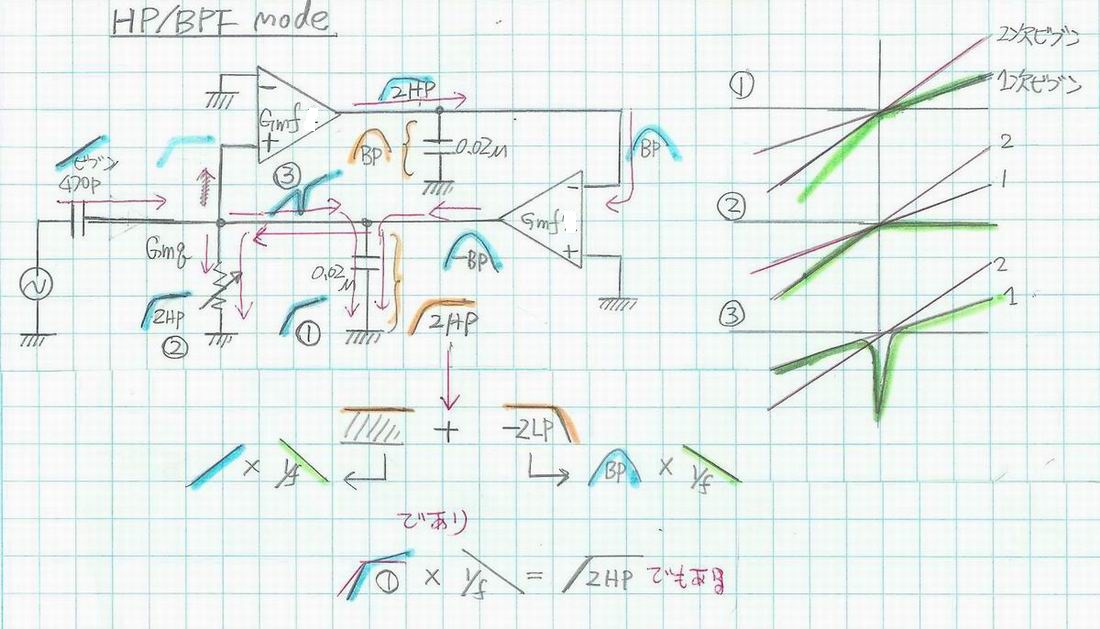 HP/BPF mode
2HP
Gmf
-
+
BP
0.02μ
BP
ビブン
470p
③
Gmf'
-
+
Gmq
0.02μ
-BP
2HP
②
①
2HP
+
-2LP
× 1/f
BP × 1/f
であり
① × 1/f = 2HP でもある
①
2次ビブン
1次ビブン
②
2
1
③
2
1